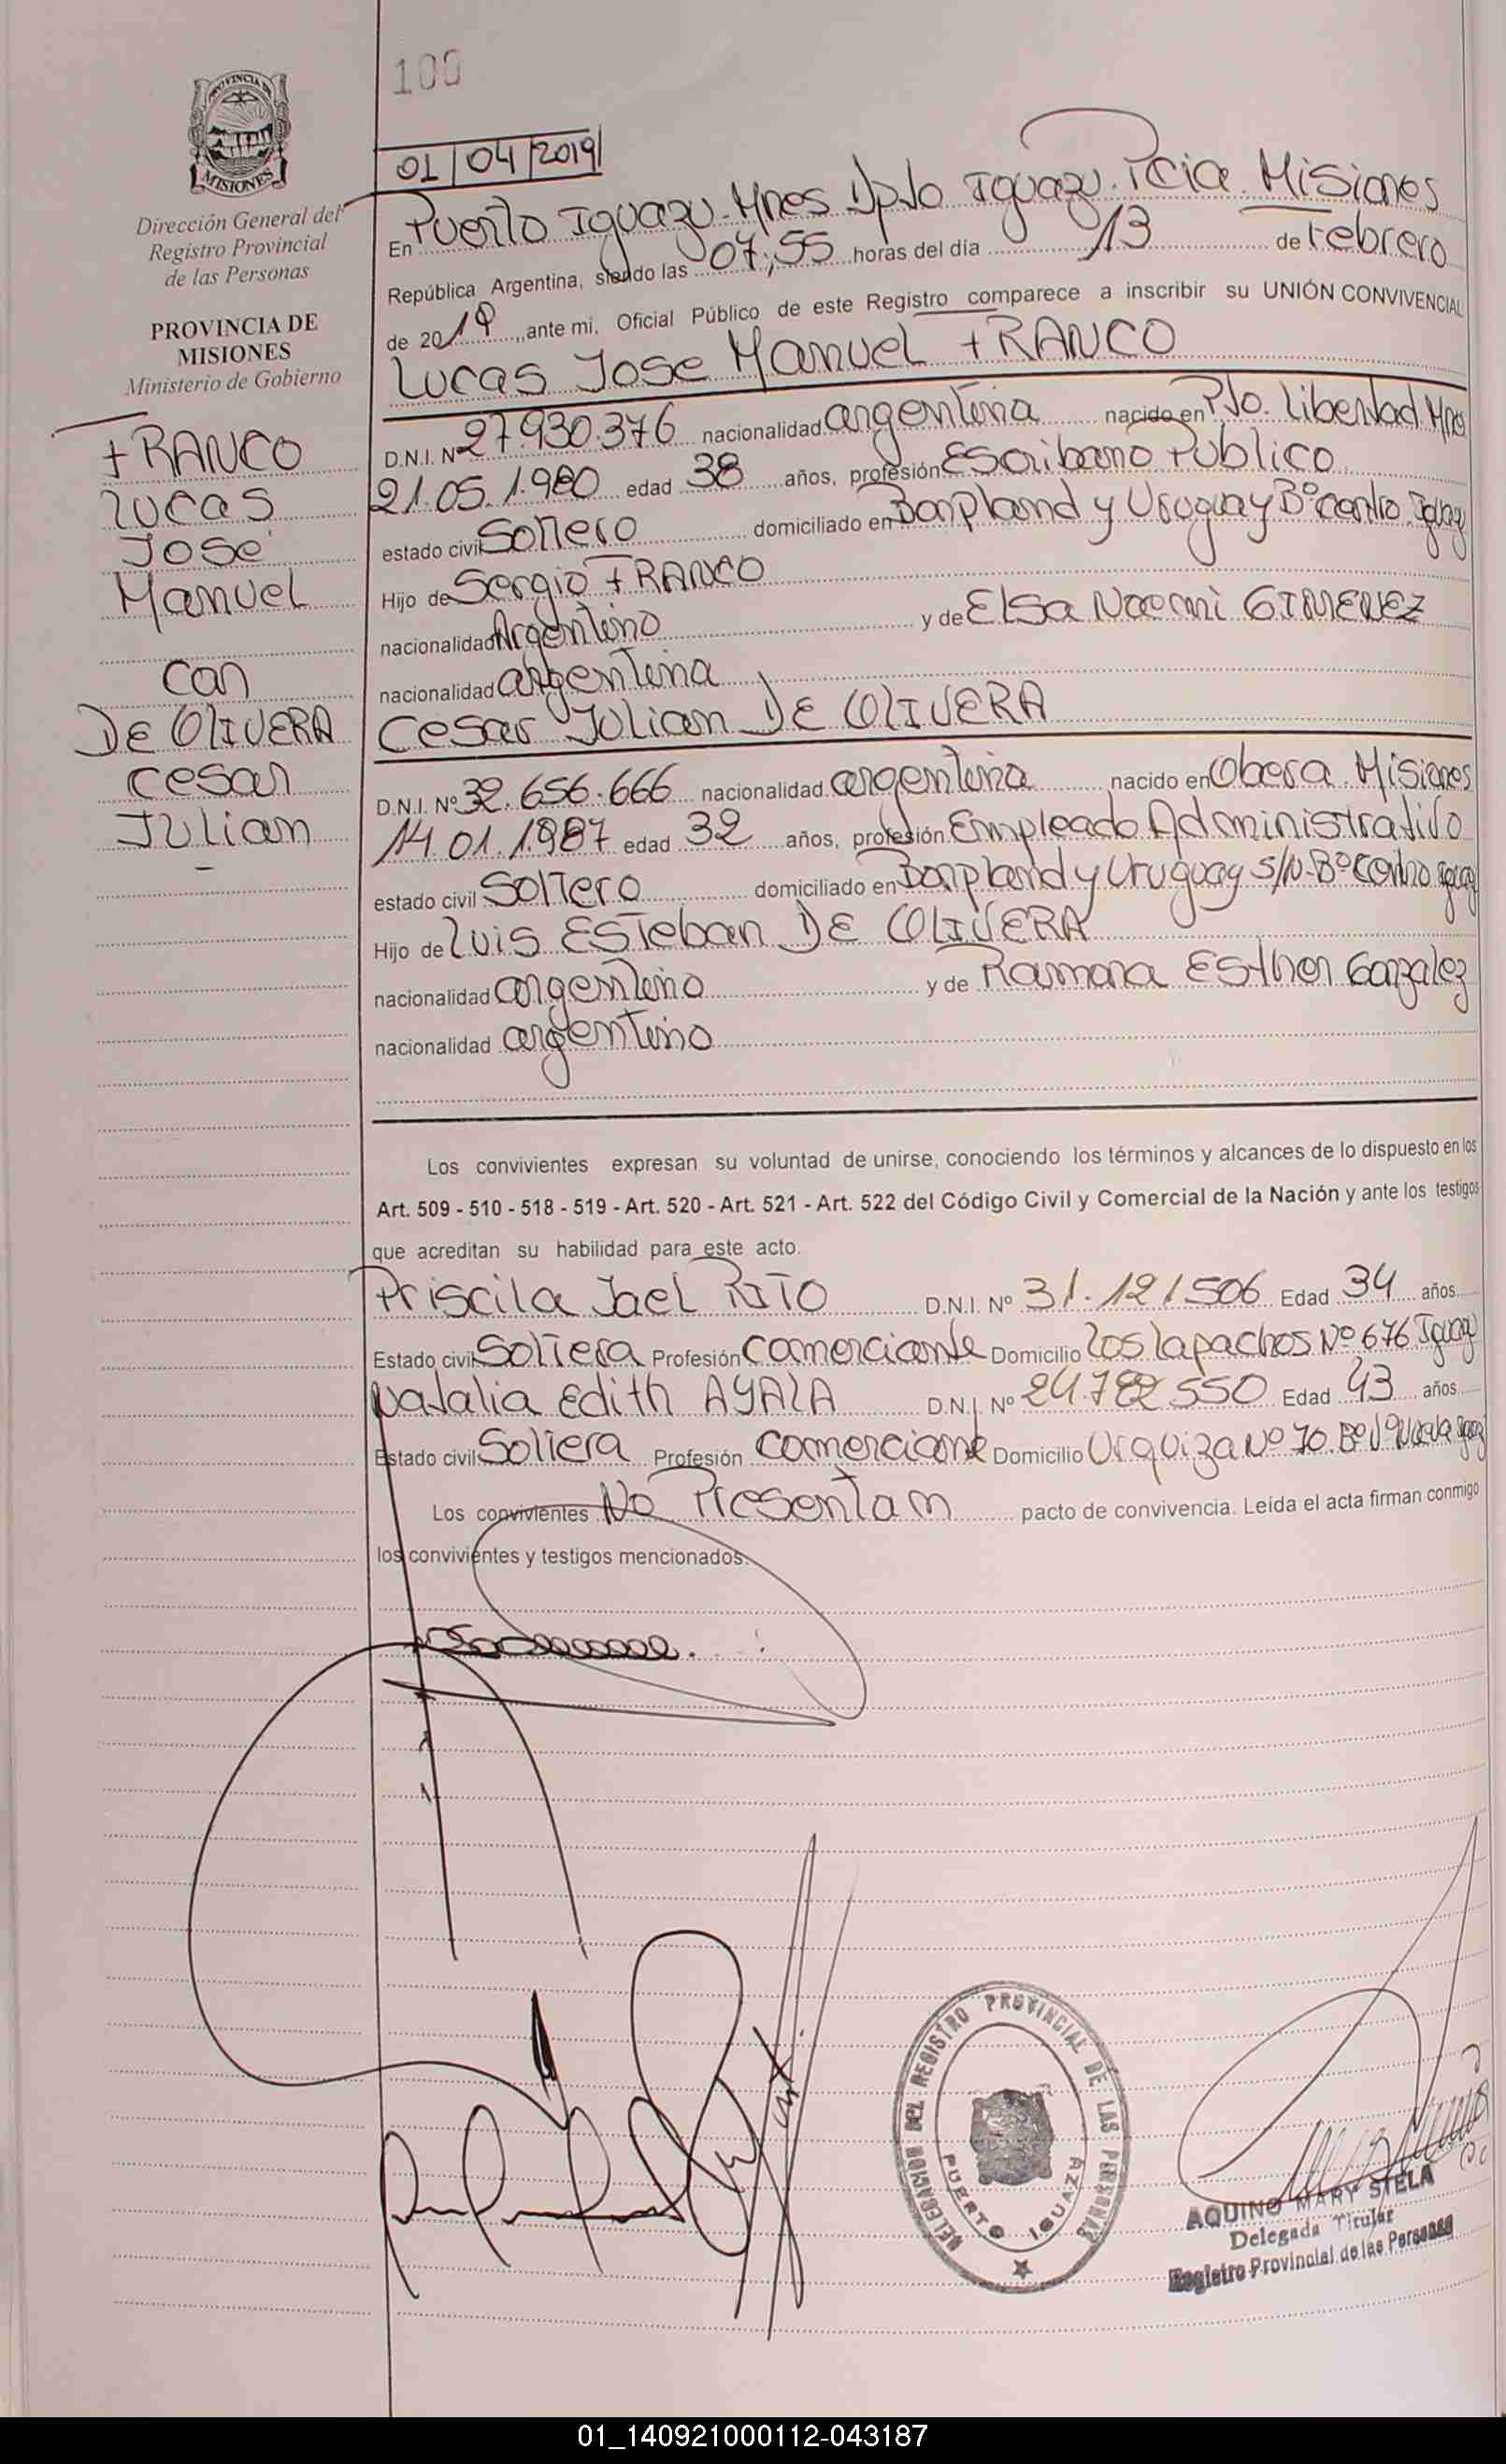 100
PROVINCIA DE
MISIONES
Dirección General del
Registro Provincial
de las Personas
PROVINCIA DE
MISIONES
Ministerio de Gobierno
FRANCO
Lucas
Jose
Manuel
con
DE OLIVERA
Cesar
Julian
01/04/2019
En Puerto Iguazu. Mnes Dpto Iguazu. Pcia. Misiones
República Argentina, siendo las 07:55 horas del día 13 de Febrero
de 2019, ante mi, Oficial Público de este Registro comparece a inscribir su UNIÓN CONVIVENCIAL
Lucas Jose Manuel FRANCO
D.N.I. Nº 27.930.376 nacionalidad argentina nacido en Pto. Libertad Mnes
21.05.1.980 edad 38 años, profesión Escribano Publico
estado civil Soltero domiciliado en Bonpland y Uruguay Bº centro. Iguazu
Hijo de Sergio FRANCO
nacionalidad Argentino y de Elsa Noemi GIMENEZ
nacionalidad argentina
Cesar Julian DE OLIVERA
D.N.I. Nº 32.656.666 nacionalidad argentina nacido en Obera. Misiones
14.01.1.987 edad 32 años, profesión Empleado Administrativo
estado civil Soltero domiciliado en Bonpland y Uruguay s/n. Bº centro Iguazu
Hijo de Luis Esteban DE OLIVERA
nacionalidad argentino y de Ramona Esther Gonzalez
nacionalidad argentino
Los convivientes expresan su voluntad de unirse, conociendo los términos y alcances de lo dispuesto en los
Art. 509 - 510 - 518 - 519 - Art. 520 - Art. 521 - Art. 522 del Código Civil y Comercial de la Nación y ante los testigos
que acreditan su habilidad para este acto.
Priscila Jael RITO D.N.I. Nº 31.121506 Edad 34 años
Estado civil Soltera Profesión Comerciante Domicilio Los Lapachos Nº 676 Iguazu
Natalia Edith AYALA D.N.I. Nº 24.782.550 Edad 43 años
Estado civil Soltera Profesión Comerciante Domicilio Urquiza Nº 70. Bº Vº Nueva Iguazu
Los convivientes No Presentan pacto de convivencia. Leída el acta firman conmigo
los convivientes y testigos mencionados.
DELEGACION DEL REGISTRO PROVINCIAL DE LAS PERSONAS
PUERTO IGUAZU
AQUINO MARY STELA
Delegada Titular
Registro Provincial de las Personas
01_140921000112-043187